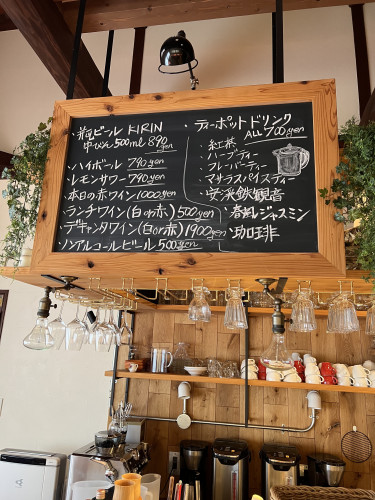 ・瓶ビール KIRIN
中びん 500ml 890yen
・ハイボール 790yen
・レモンサワー 790yen
・本日の赤ワイン 1000yen
・ランチワイン(白or赤) 500yen
・デキャンタワイン(白or赤) 1900yen
・ノンアルコールビール 500yen
・ティーポットドリンク
ALL 700yen
・紅茶
・ハーブティー
・フレーバーティー
・マサラスパイスティー
・安渓鉄観音
・春風ジャスミン
・珈琲